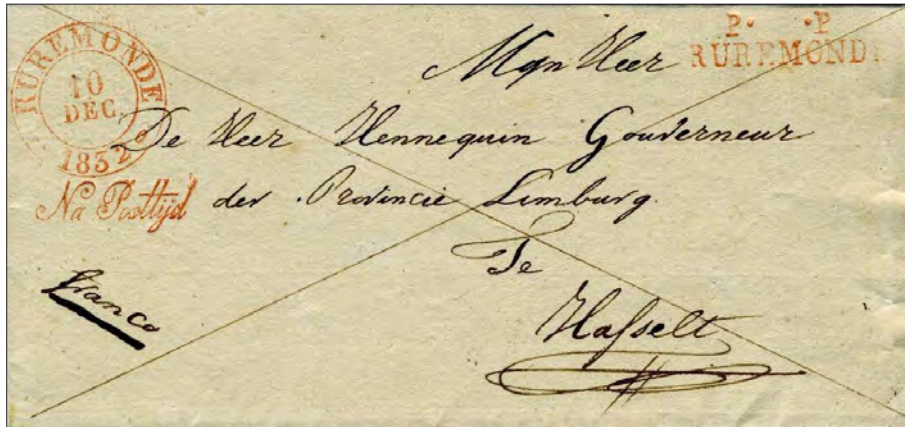 RUREMONDE
10
DEC.
1832
P. .P
RUREMONDE
Mijn Heer
De Heer Hennequin Gouverneur
Na Posttijd
der Provincie Limburg.
Te
Hasselt
franco